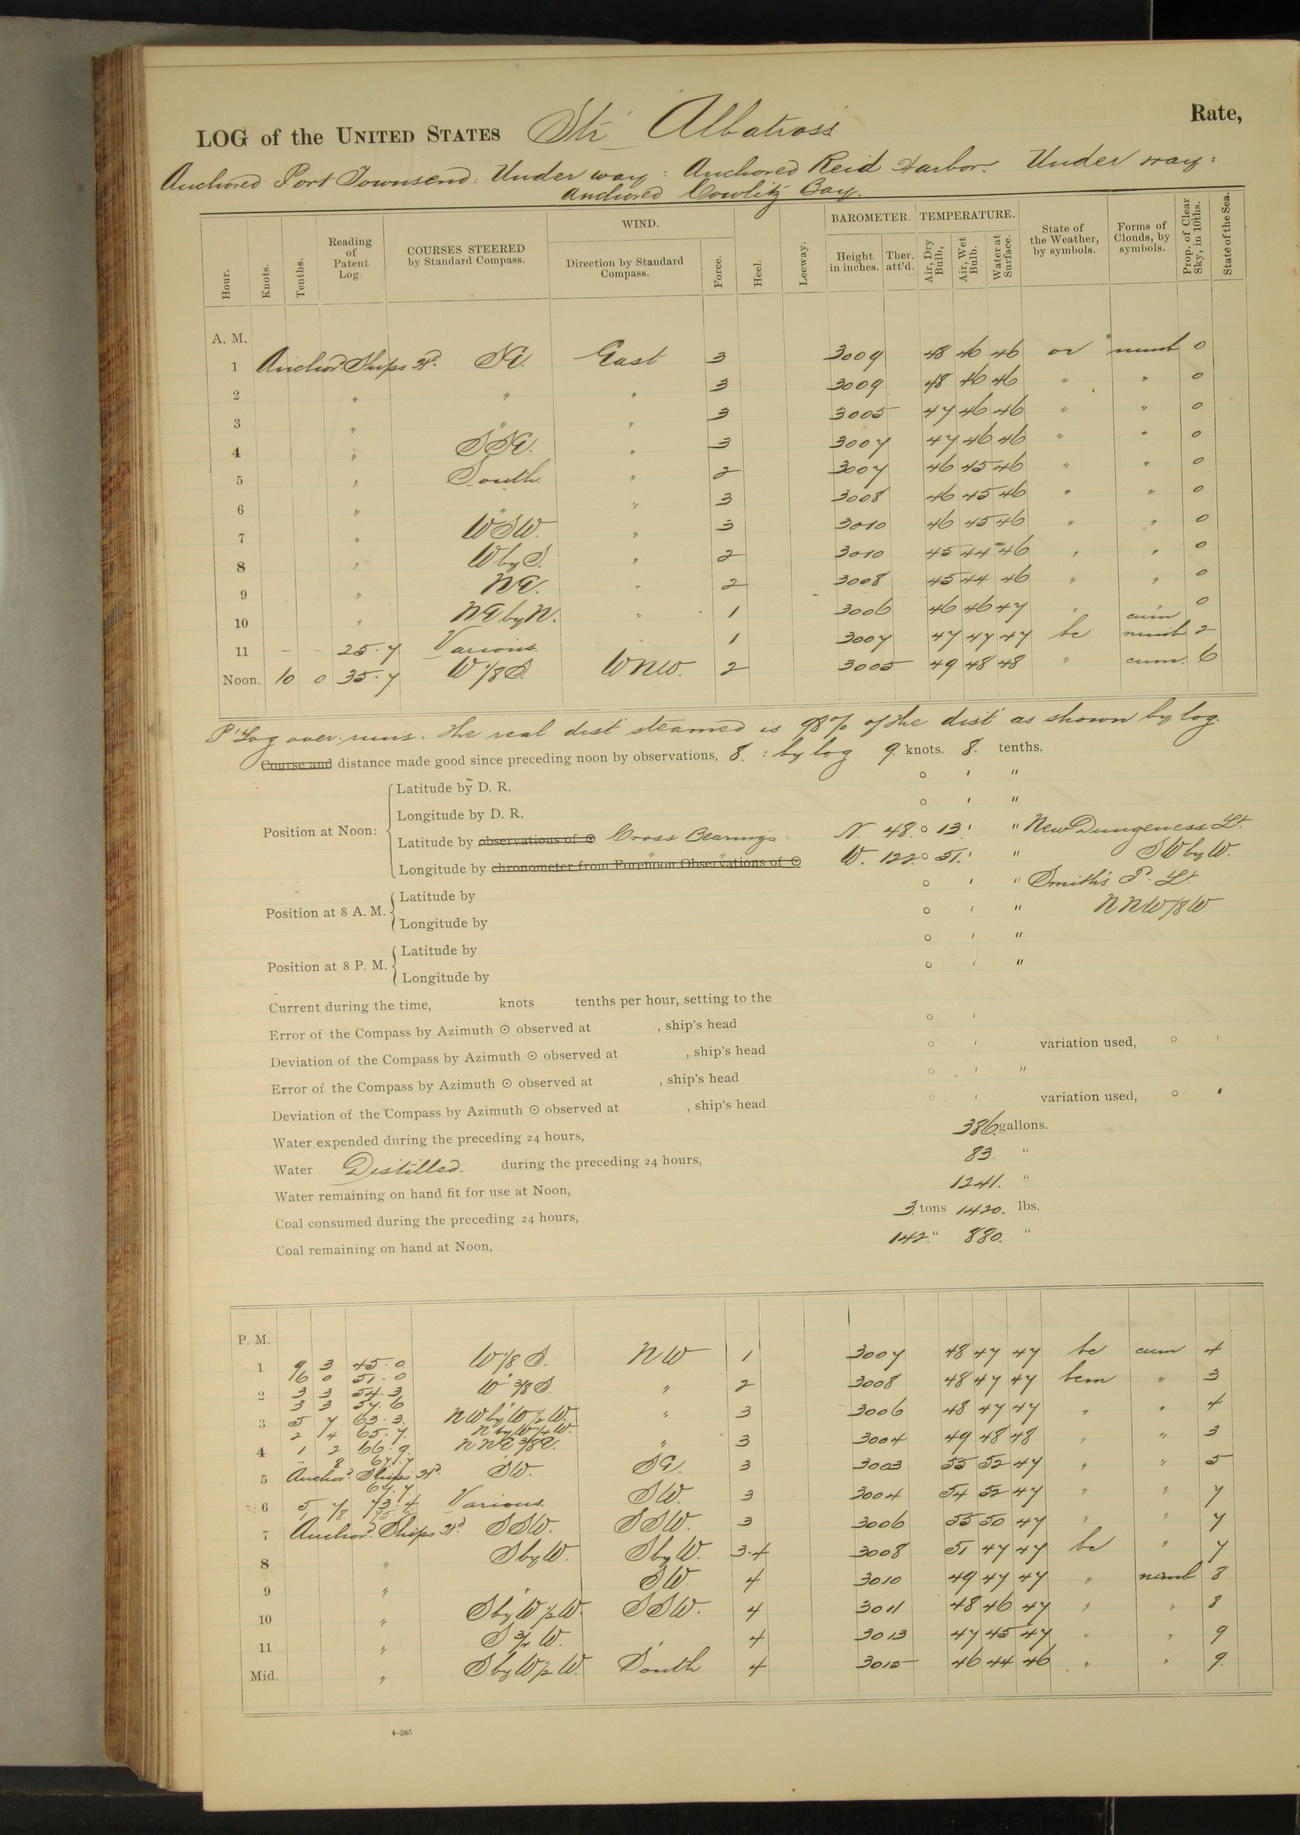 LOG of the UNITED STATES Str Albatross Rate,
Anchored Port Townsend: Under way: Anchored Reid Harbor. Under way:
Anchored Cowlitz Bay.
Hour. Knots. Tenths. Reading of Patent Log. COURSES STEERED by Standard Compass. WIND. Direction by Standard Compass. Force. Heel. Leeway. BAROMETER. Height in inches. Ther. att'd. TEMPERATURE. Air, Dry Bulb, Air, Wet Bulb. Water at Surface. State of the Weather, by symbols. Forms of Clouds, by symbols. Prop. of Clear Sky, in 10ths. State of the Sea.
A. M.
1 Anchor. Ships Hd. SE. East 3 3009 48 46 46 or numb 0
2 " " " 3 3009 48 46 46 " " 0
3 " " " 3 3005 47 46 46 " " 0
4 " SSE. " 3 3007 47 46 46 " " 0
5 " South. " 2 3007 46 45 46 " " 0
6 " " " 3 3008 46 45 46 " " 0
7 " WSW. " 3 3010 46 45 46 " " 0
8 " W by S. " 2 3010 45 44 46 " " 0
9 " NE. " 2 3008 45 44 46 " " 0
10 " NE by N. " 1 3006 46 46 47 " " 0
11 - - 25.7 Various. 1 3007 47 47 47 bc cum numb 2
Noon. 10 0 35.7 W 1/8 S. WNW. 2 3005 49 48 48 " cum. 6
P' Log over-runs. The real dist steamed is 98% of the dist as shown by log.
Course and distance made good since preceding noon by observations, 8. : by log 9. knots. 8. tenths.
Position at Noon: Latitude by D. R. ° ' "
Longitude by D. R. ° ' "
Latitude by observations of ☉ Cross Bearings N. 48° 13' " New Dungeness Lt.
Longitude by chronometer from Forenoon Observations of ☉ W. 122° 51' " SW by W.
Position at 8 A. M. Latitude by ° ' " Smith's P. Lt.
Longitude by ° ' " NNW 1/8 W
Position at 8 P. M. Latitude by ° ' "
Longitude by ° ' "
Current during the time, knots tenths per hour, setting to the
Error of the Compass by Azimuth ☉ observed at , ship's head ° '
Deviation of the Compass by Azimuth ☉ observed at , ship's head ° ' variation used, ° '
Error of the Compass by Azimuth ☉ observed at , ship's head ° ' "
Deviation of the Compass by Azimuth ☉ observed at , ship's head ° ' variation used, ° '
Water expended during the preceding 24 hours, 386. gallons.
Water Distilled. during the preceding 24 hours, 83. "
Water remaining on hand fit for use at Noon, 1241. "
Coal consumed during the preceding 24 hours, 3. tons 1420. lbs.
Coal remaining on hand at Noon, 142. " 880. "
P. M.
1 9 3 45.0 W 1/8 S. NW 1 3007 48 47 47 bc cum 4
6 0 51.0
2 3 3 54.3 W 3/8 S. " 2 3008 48 47 47 bcm " 3
3 3 57.6
3 5 7 63.3 NW by W 1/2 W. " 3 3006 48 47 47 " " 4
2 4 65.7 N by W 1/2 W.
4 1 2 66.9 NNE 3/8 E. " 3 3004 49 48 48 " " 3
- 8 67.7
5 Anchor. Ships Hd. SW. SE. 3 3003 55 52 47 " " 5
67.7
6 5 7 73.4 Various. SW. 3 3004 54 52 47 " " 7
7 Anchor. Ships Hd. SSW. SSW. 3 3006 55 50 47 " " 7
8 " S by W. S by W. 3-4 3008 51 47 47 bc " 7
9 " " SW. 4 3010 49 47 47 " numb 8
10 " S by W 1/2 W. SSW. 4 3011 48 46 47 " " 8
11 " S 3/4 W. " 4 3013 47 45 47 " " 9
Mid. " S by W 1/2 W. South 4 3015 46 44 46 " " 9.
4-265